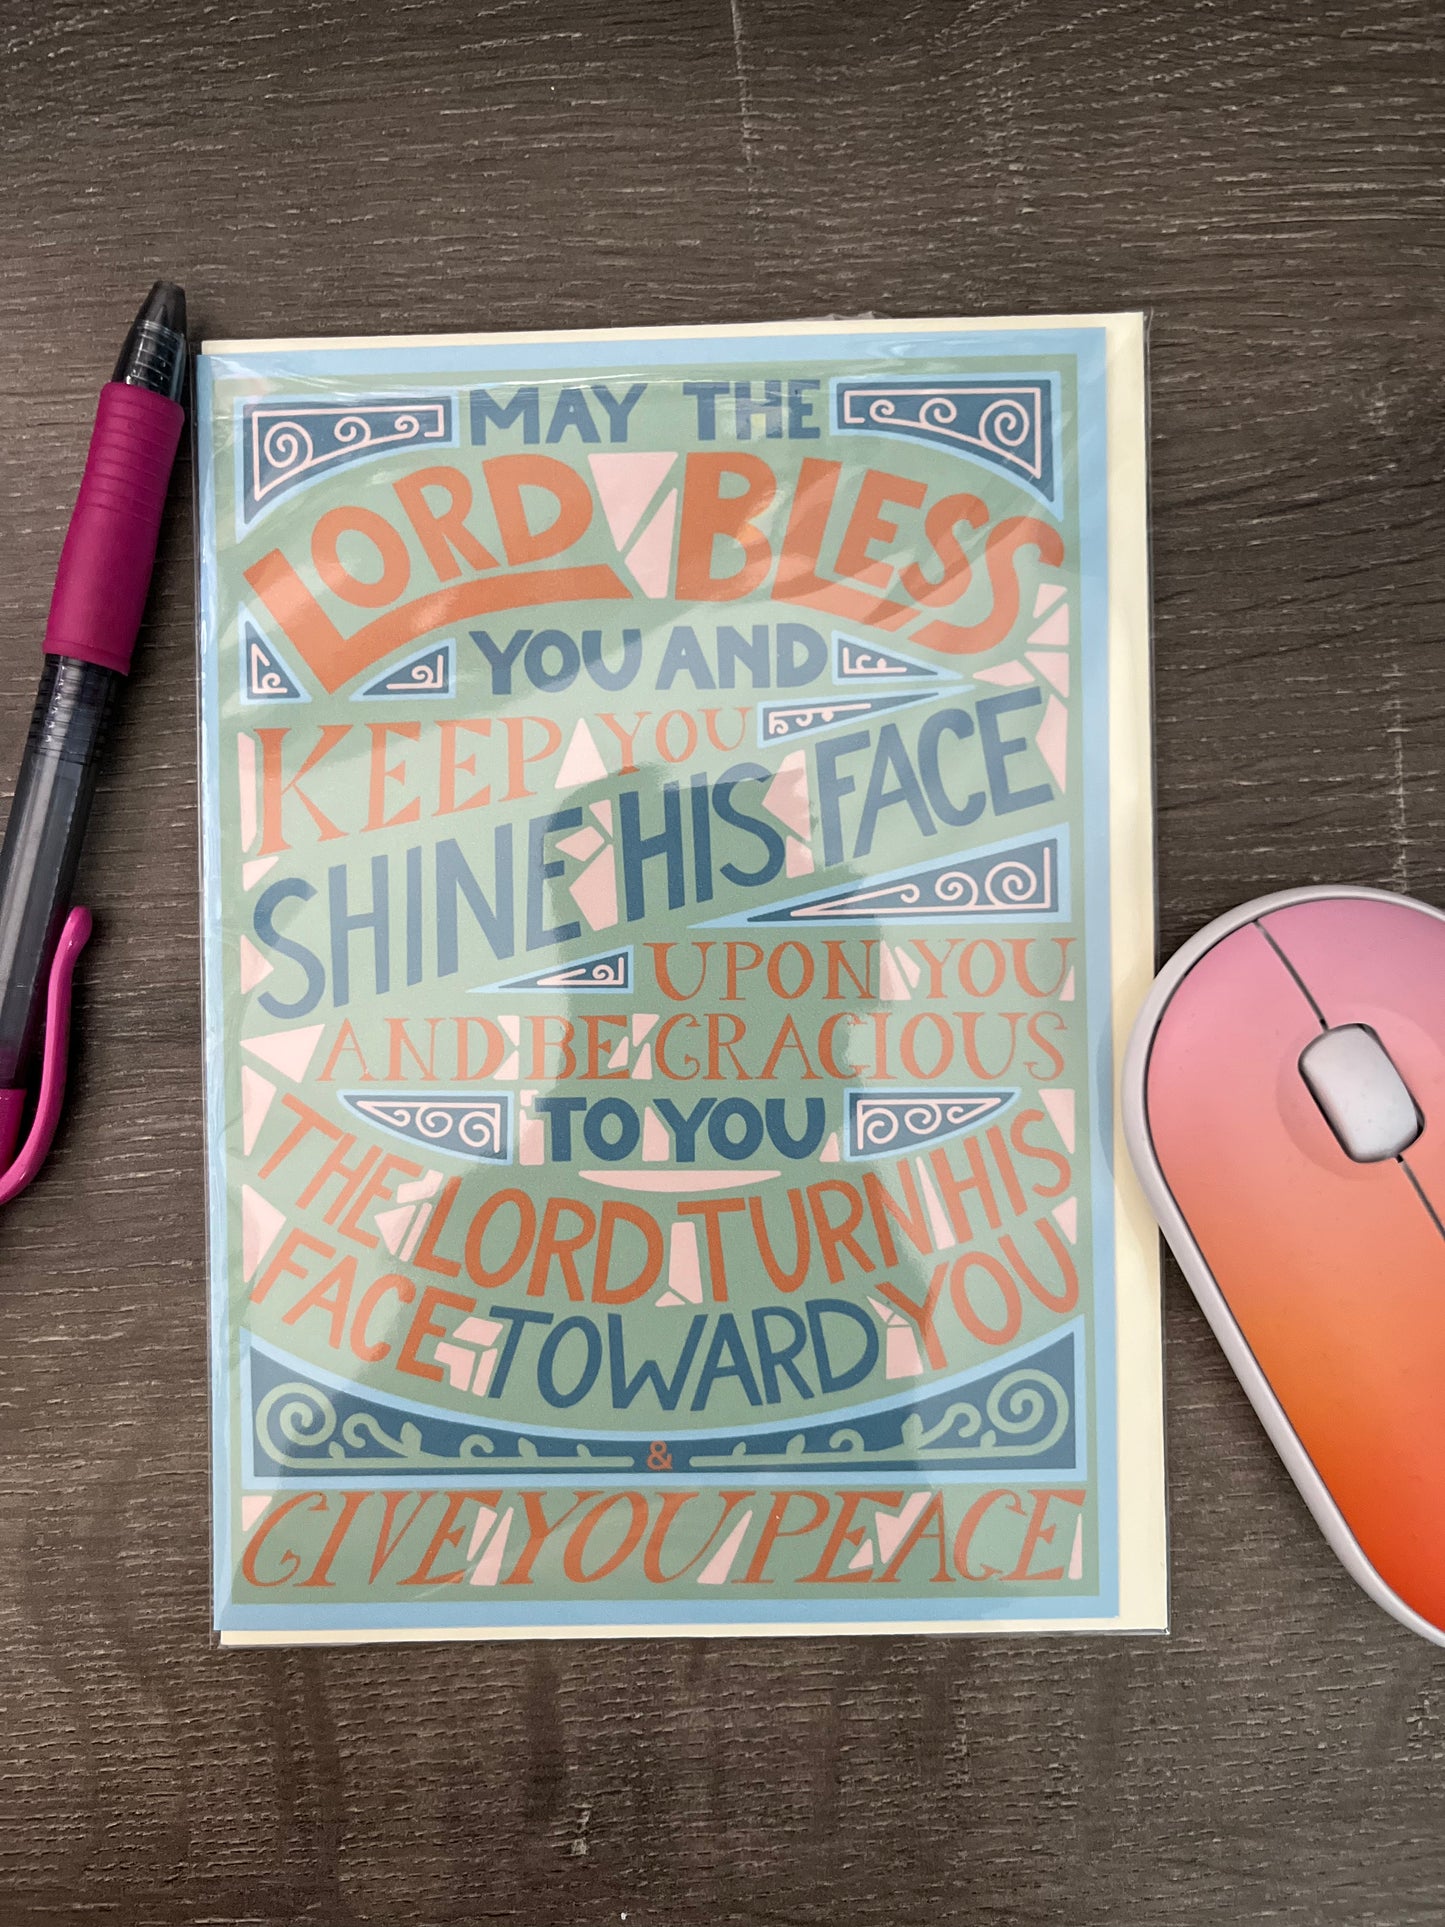 MAY THE
LORD BLESS
YOU AND
KEEP YOU
SHINE HIS FACE
UPON YOU
AND BE GRACIOUS
TO YOU
THE LORD TURN HIS
FACE TOWARD YOU
&
GIVE YOU PEACE